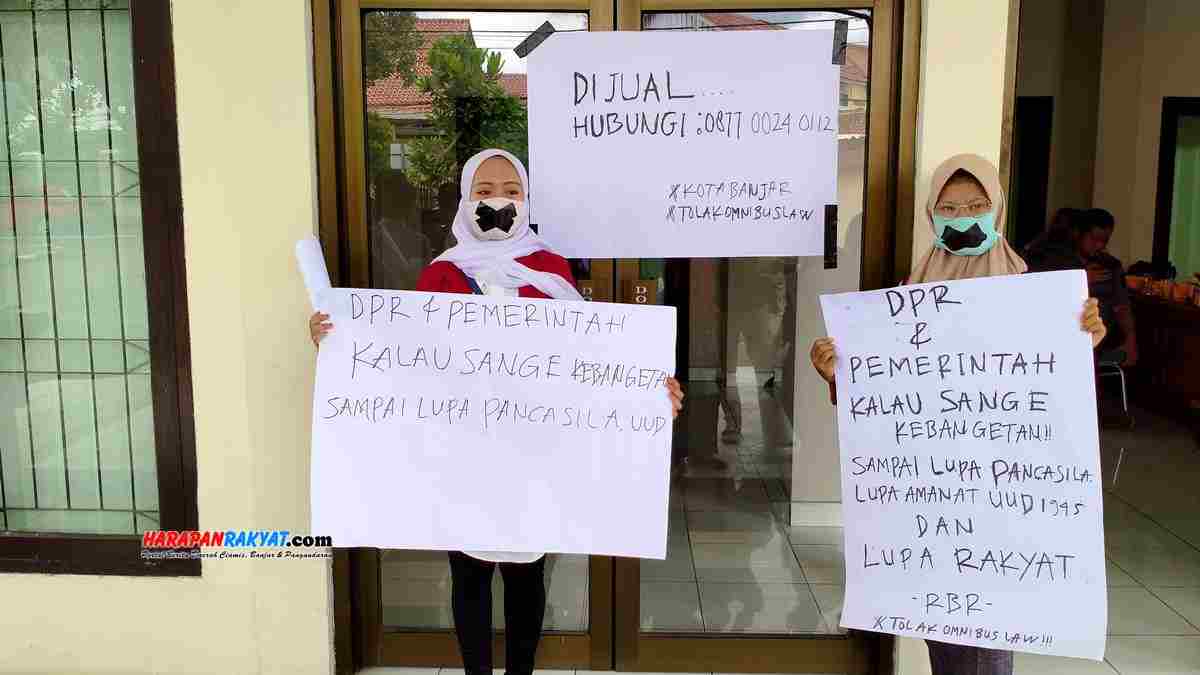 DIJUAL....
HUBUNGI : 0877 0024 0112
#KOTA BANJAR
#TOLAK OMNIBUS LAW
DPR & PEMERINTAH
KALAU SANGE KEBANGETAN
SAMPAI LUPA PANCASILA, UUD
DPR
&
PEMERINTAH
KALAU SANGE
KEBANGETAN!!
SAMPAI LUPA PANCASILA.
LUPA AMANAT UUD 1945
DAN
LUPA RAKYAT
-RBR-
#TOLAK OMNIBUS LAW!!!
HARAPANRAKYAT.com
Portal Berita Daerah Ciamis, Banjar & Pangandaran